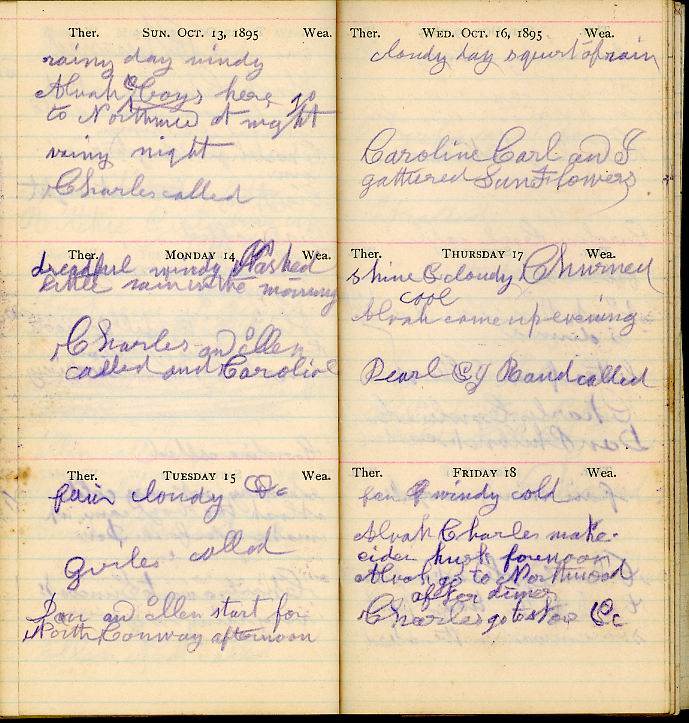 Ther. SUN. OCT. 13, 1895 Wea.
rainy day windy
Alvah & Boys here go
to Northwood at night
rainy night
Charles called
Ther. MONDAY 14 Wea.
dreadful windy Washed
little rain in the morning
Charles an Ellen
called and Caroline
Ther. TUESDAY 15 Wea.
fair cloudy &c
called
Dan an Ellen start for
North Conway afternoon
Ther. WED. OCT. 16, 1895 Wea.
cloudy day squirt of rain
Caroline Carl and I
gathered SunFlowers
Ther. THURSDAY 17 Wea.
shine & cloudy Churned
cool
Alvah come up evening
Pearl & Rand called
Ther. FRIDAY 18 Wea.
fair & windy cold
Alvah Charles make
cider husk forenoon
Alvah go to Northwood
after dinner
Charles go to &c